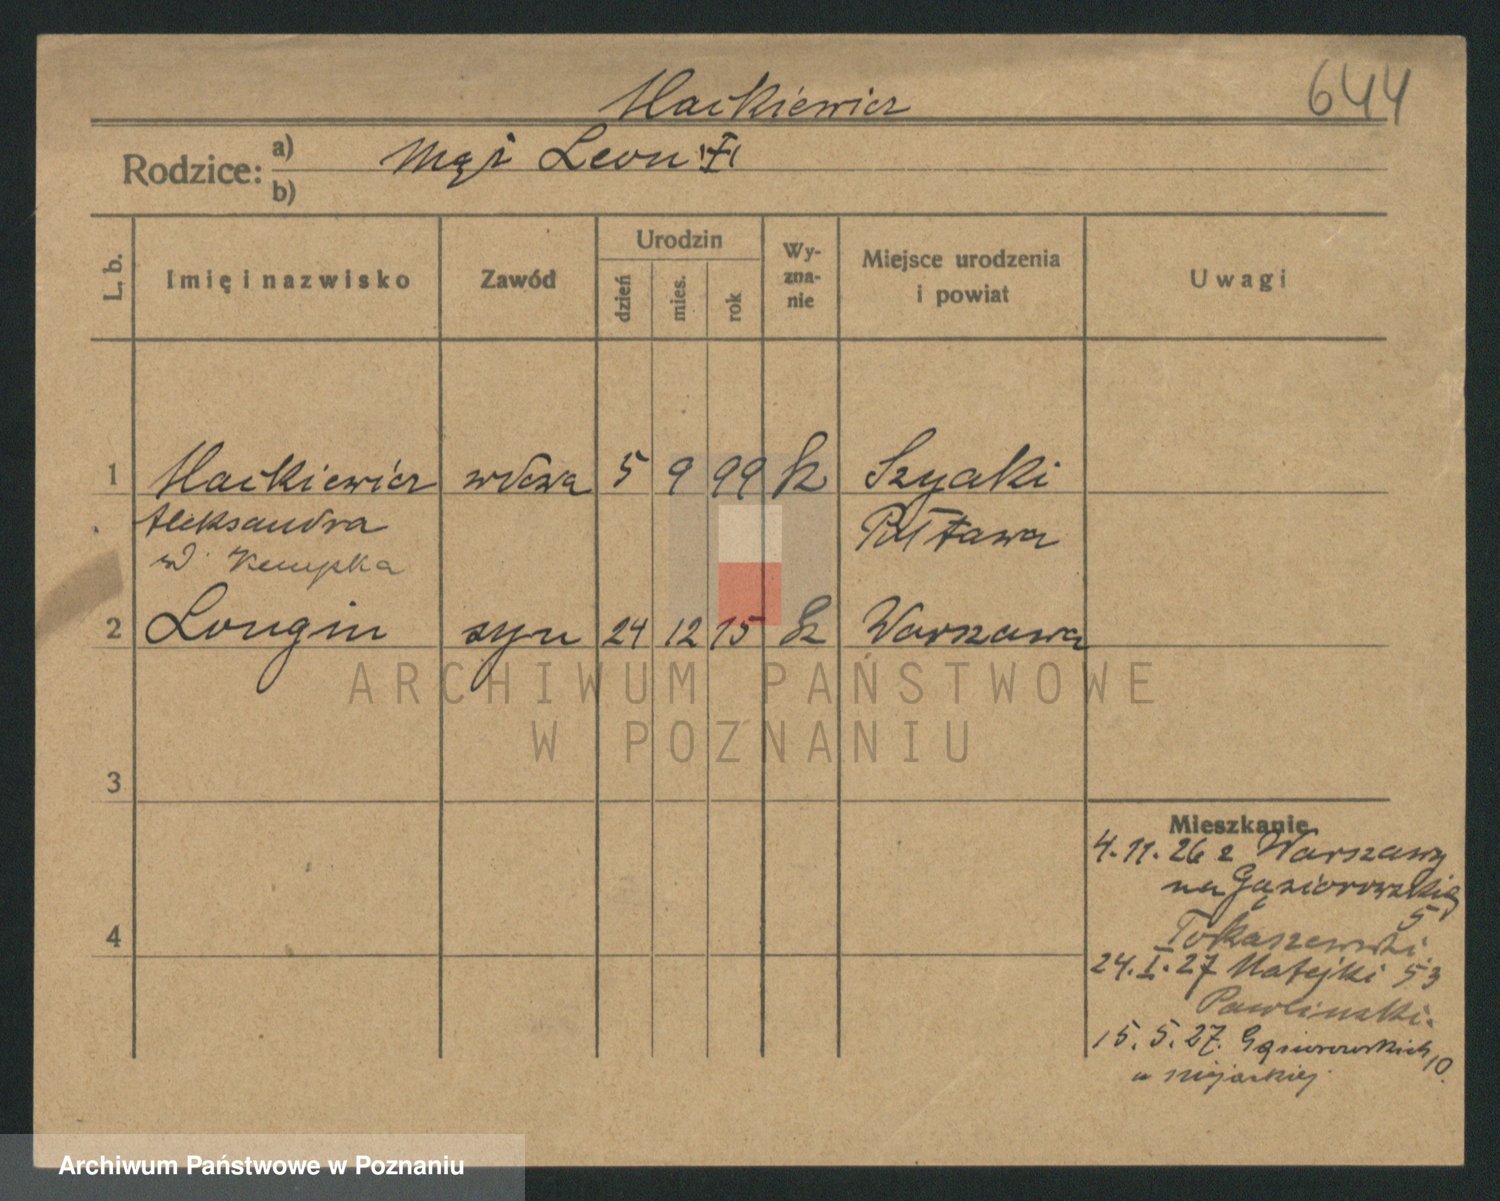 Mackiewicz
644
Rodzice: a) Mąż Leon
b)
L. b.
Imię i nazwisko
Zawód
Urodzin
dzień
mies.
rok
Wy-
zna-
nie
Miejsce urodzenia
i powiat
Uwagi
1 Mackiewicz wdowa 5 9 99 k Szyaki
Aleksandra Połtawa
Kempka
2 Longin syn 24 12 15 k Warszawa
3
4
Mieszkanie
4.11.26 z Warszawy
na Gąsiorowskich
5
Tokaszewski.
24.I.27 Matejki 53
Pawlinski.
15.5.27. Gąsiorowskich
10.
u
ARCHIWUM PAŃSTWOWE
W POZNANIU
Archiwum Państwowe w Poznaniu